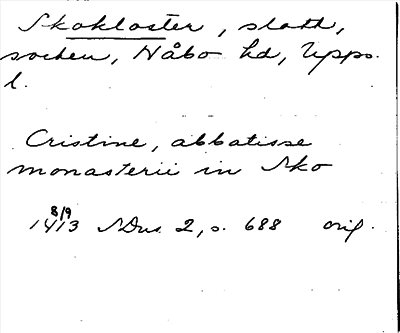 Skokloster, slott,
socken, Håbo hd, Upps.
l.
Cristine, abbatisse
monasterii in Sko
8/9
1413 SDns 2, s. 688 orig.